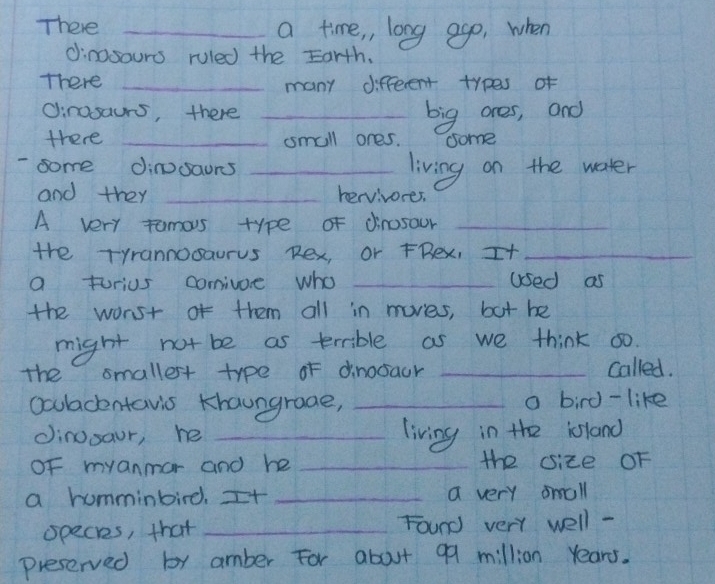 There ________ a time,, long ago, when
dinosaurs ruled the Earth.
There ________ many different types of
dinosaurs, there ________ big ones, and
there ________ small ones. Some
- some dinosaurs ________ living on the water
and they ________ hervivores.
A very famous type of dinosaur ________
the Tyrannosaurus Rex, or TRex. It ________
a furius carnivore who ________ used as
the worst of them all in movies, but he
might not be as terrible as we think so.
The smallest type of dinosaur ________ called.
Oculadentavis Khaungraae, ________ a bird-like
dinosaur, he ________ living in the island
of myanmar and he ________ the size of
a humminbird. It ________ a very small
species, that ________ found very well -
preserved by amber for about 99 million years.